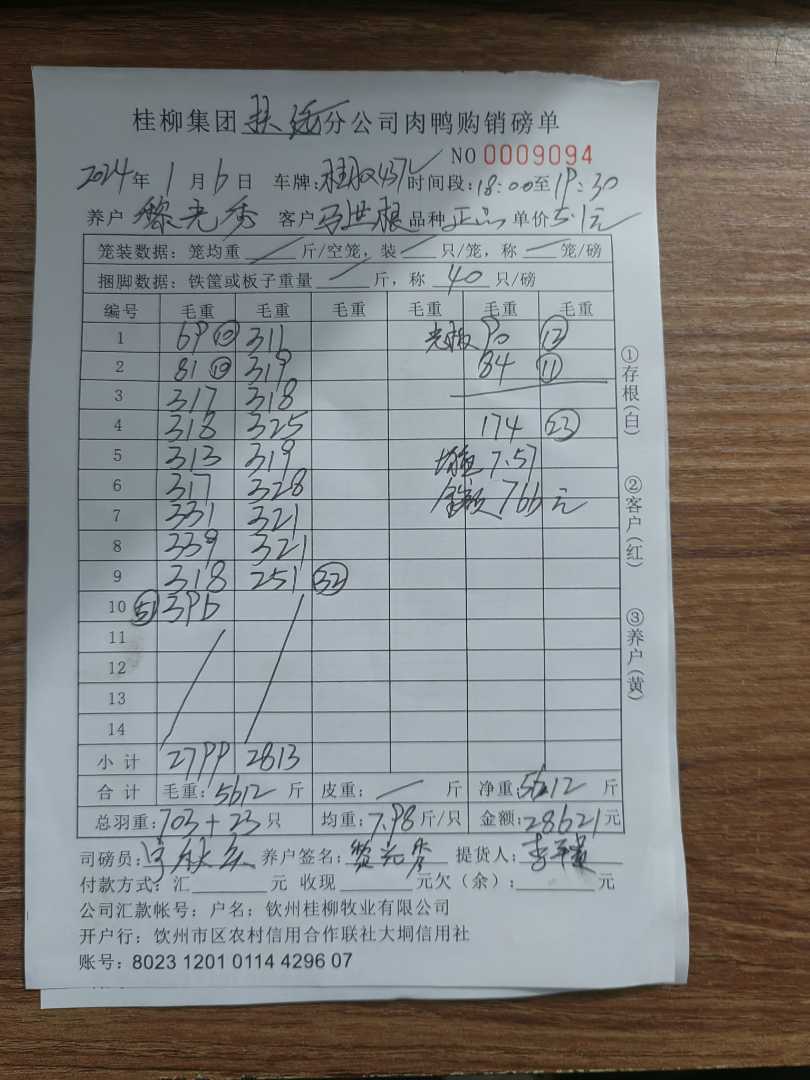 桂柳集团扶绥分公司肉鸭购销磅单
NO 0009094
2024年1月6日 车牌: 时间段:18:00至19:30
养户 黎光秀 客户 马世根 品种 正品 单价 5.1元
笼装数据：笼均重 / 斤/空笼，装 / 只/笼，称 / 笼/磅
捆脚数据：铁筐或板子重量 / 斤，称 40 只/磅
编号 毛重 毛重 毛重 毛重 毛重 毛重
1 69 ⑩ 311 光板 90 ⑫
2 81 ⑩ 319 84 ⑪
3 317 318
4 318 325 174 ㉓
5 313 319 均重 7.57
6 317 328 金额 766元
7 331 321
8 339 321
9 318 251 ㉜
10 �51 396
11
12
13
14
小计 2799 2813
合计 毛重：5612 斤 皮重：/ 斤 净重：5612 斤
总羽重：703+23 只 均重：7.98 斤/只 金额：28621元
司磅员： 养户签名：黎光秀 提货人：
付款方式：汇 元 收现 元欠（余）： 元
公司汇款帐号：户名：钦州桂柳牧业有限公司
开户行：钦州市区农村信用合作联社大垌信用社
账号：8023 1201 0114 4296 07
①存根（白）
②客户（红）
③养户（黄）